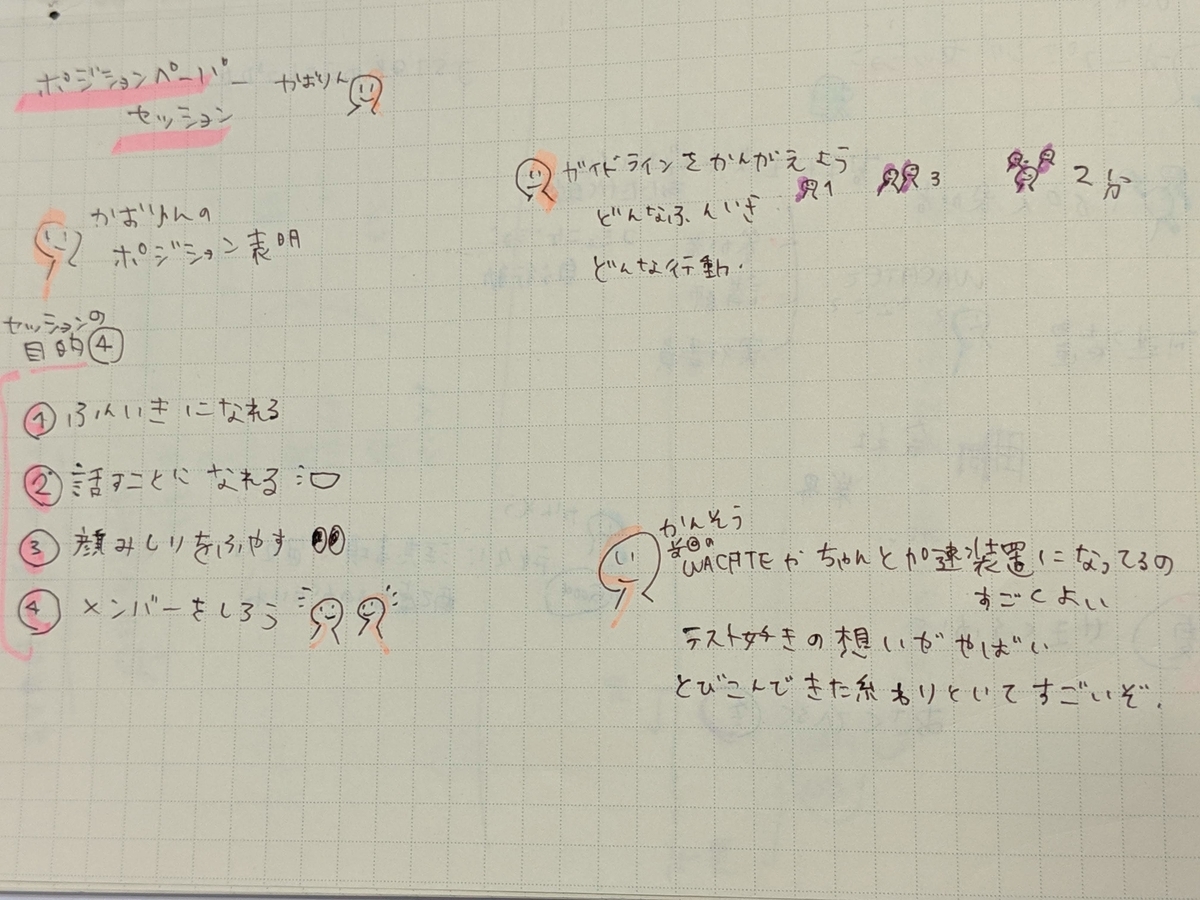 ポジションペーパー かばりん
セッション
かばりんの
ポジション表明
セッションの
目的④
① ふんいきになれる
② 話すことになれる
③ 顔みしりをふやす
④ メンバーをしろう
ガイドラインをかんがえよう
1 3 2分
どんなふんいき
どんな行動.
かんそう
WACATEがちゃんと加速装置になってるの
すごくよい
テスト好きの想いがやばい
とびこんできた
すごいぞ.